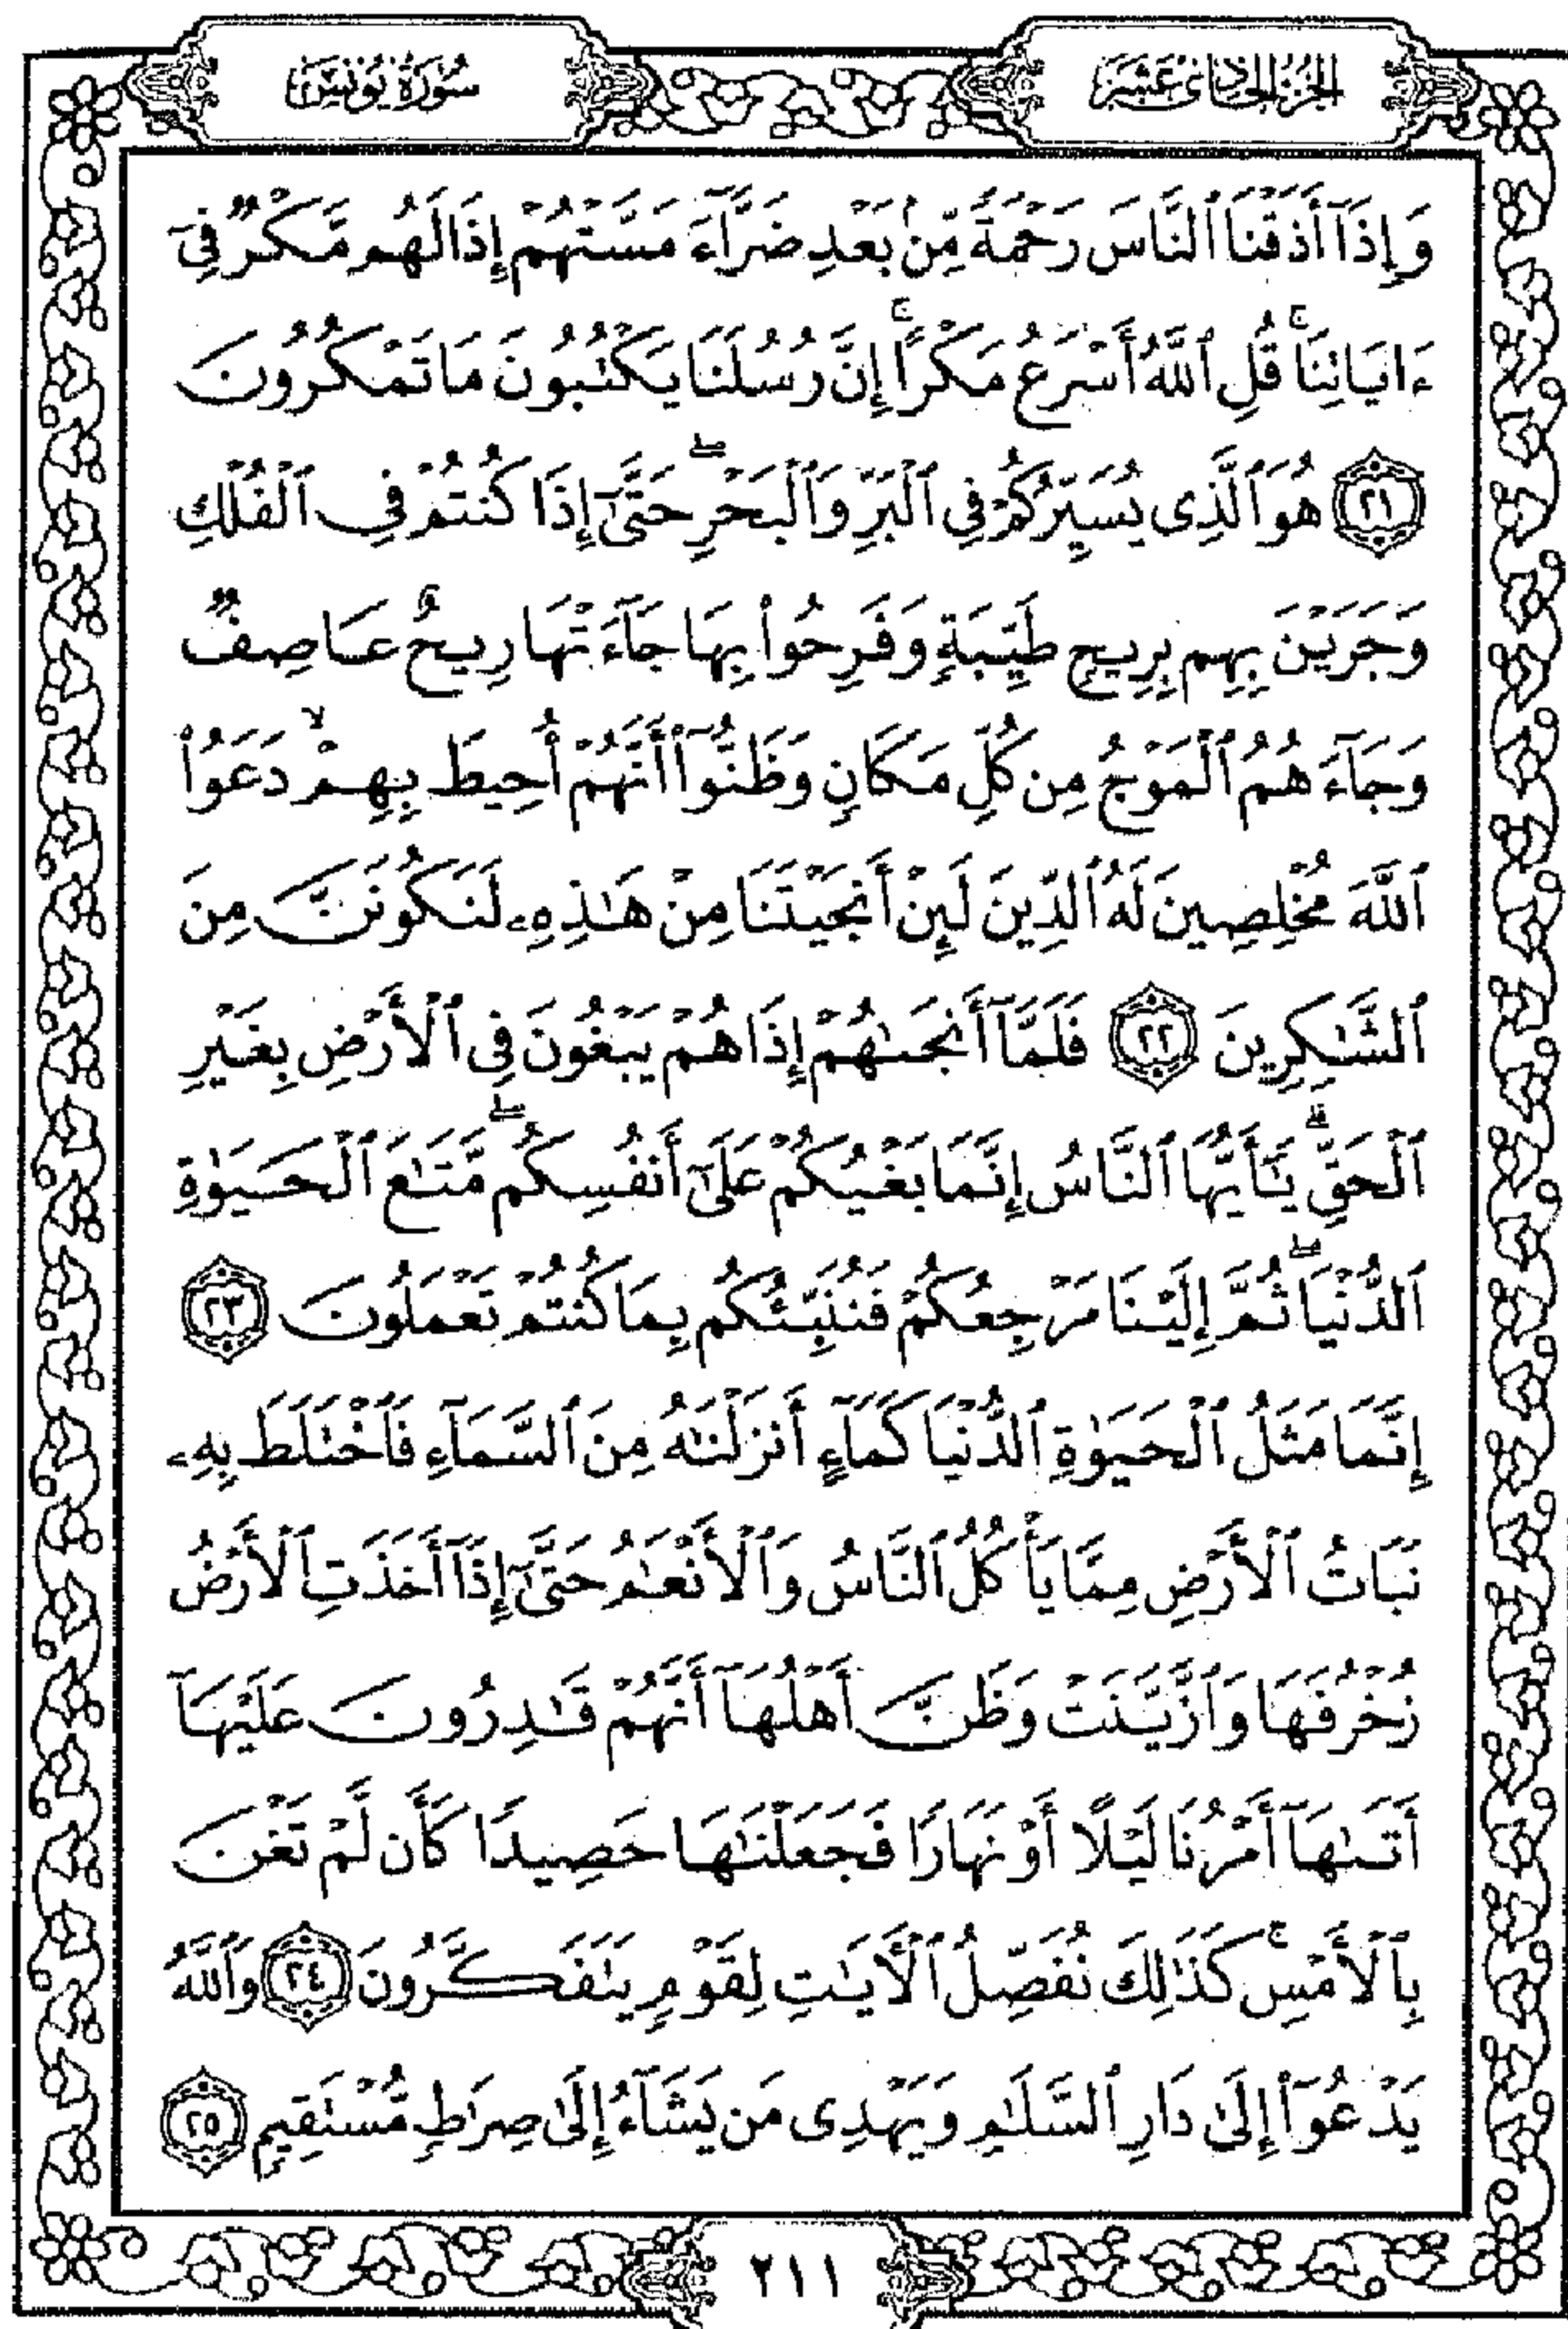 الجزء الحادي عشر
سورة يونس
وَإِذَآ أَذَقْنَا ٱلنَّاسَ رَحْمَةً مِّنۢ بَعْدِ ضَرَّآءَ مَسَّتْهُمْ إِذَا لَهُم مَّكْرٌ فِىٓ
ءَايَاتِنَا ۚ قُلِ ٱللَّهُ أَسْرَعُ مَكْرًا ۚ إِنَّ رُسُلَنَا يَكْتُبُونَ مَا تَمْكُرُونَ
٢١ هُوَ ٱلَّذِى يُسَيِّرُكُمْ فِى ٱلْبَرِّ وَٱلْبَحْرِ ۖ حَتَّىٰٓ إِذَا كُنتُمْ فِى ٱلْفُلْكِ
وَجَرَيْنَ بِهِم بِرِيحٍ طَيِّبَةٍ وَفَرِحُوا۟ بِهَا جَآءَتْهَا رِيحٌ عَاصِفٌ
وَجَآءَهُمُ ٱلْمَوْجُ مِن كُلِّ مَكَانٍ وَظَنُّوٓا۟ أَنَّهُمْ أُحِيطَ بِهِمْ ۙ دَعَوُا۟
ٱللَّهَ مُخْلِصِينَ لَهُ ٱلدِّينَ لَئِنْ أَنجَيْتَنَا مِنْ هَـٰذِهِۦ لَنَكُونَنَّ مِنَ
ٱلشَّـٰكِرِينَ ٢٢ فَلَمَّآ أَنجَىٰهُمْ إِذَا هُمْ يَبْغُونَ فِى ٱلْأَرْضِ بِغَيْرِ
ٱلْحَقِّ ۗ يَـٰٓأَيُّهَا ٱلنَّاسُ إِنَّمَا بَغْيُكُمْ عَلَىٰٓ أَنفُسِكُم ۖ مَّتَـٰعَ ٱلْحَيَوٰةِ
ٱلدُّنْيَا ۖ ثُمَّ إِلَيْنَا مَرْجِعُكُمْ فَنُنَبِّئُكُم بِمَا كُنتُمْ تَعْمَلُونَ ٢٣
إِنَّمَا مَثَلُ ٱلْحَيَوٰةِ ٱلدُّنْيَا كَمَآءٍ أَنزَلْنَـٰهُ مِنَ ٱلسَّمَآءِ فَٱخْتَلَطَ بِهِۦ
نَبَاتُ ٱلْأَرْضِ مِمَّا يَأْكُلُ ٱلنَّاسُ وَٱلْأَنْعَـٰمُ حَتَّىٰٓ إِذَآ أَخَذَتِ ٱلْأَرْضُ
زُخْرُفَهَا وَٱزَّيَّنَتْ وَظَنَّ أَهْلُهَآ أَنَّهُمْ قَـٰدِرُونَ عَلَيْهَآ
أَتَىٰهَآ أَمْرُنَا لَيْلًا أَوْ نَهَارًا فَجَعَلْنَـٰهَا حَصِيدًا كَأَن لَّمْ تَغْنَ
بِٱلْأَمْسِ ۚ كَذَٰلِكَ نُفَصِّلُ ٱلْـَٔايَـٰتِ لِقَوْمٍ يَتَفَكَّرُونَ ٢٤ وَٱللَّهُ
يَدْعُوٓا۟ إِلَىٰ دَارِ ٱلسَّلَـٰمِ وَيَهْدِى مَن يَشَآءُ إِلَىٰ صِرَٰطٍ مُّسْتَقِيمٍ ٢٥
٢١١